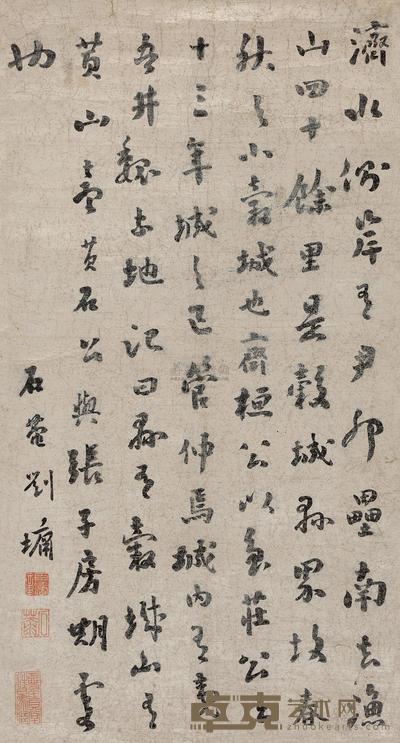 濟水側岸有尹卯壘南去漁
山四十餘里是穀城縣界故春
秋之小穀城也齊桓公以魯莊公二
十三年城之邑管仲焉城內有夷
吾井魏土地記曰縣有穀城山有
黃山臺黃石公與張子房期處
也
石菴劉墉
卓克艺术网